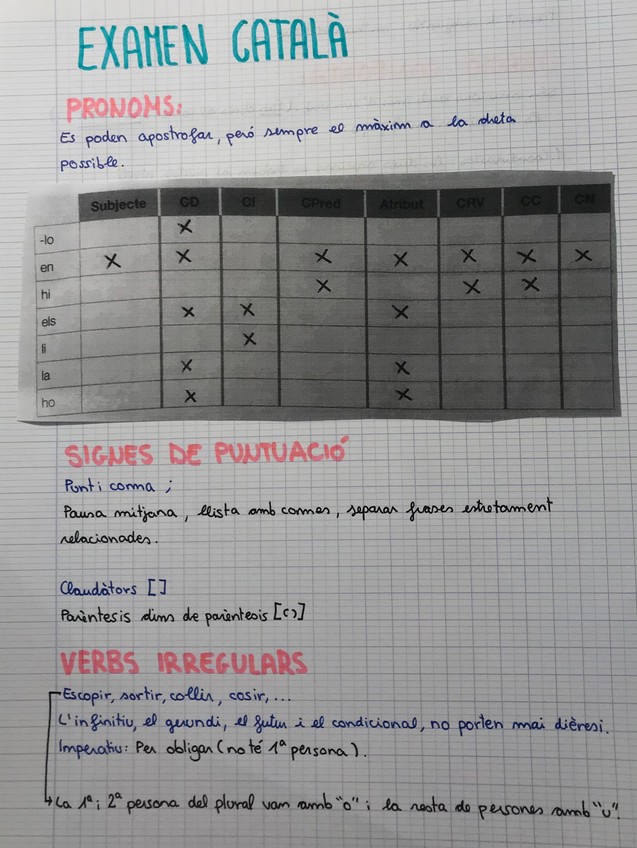 EXAMEN CATALÀ
PRONOMS:
Es poden apostrofar, peró sempre el màxim a la dreta
possible.
Subjecte CD CI CPred Atribut CRV CC CN
-lo X
en X X X X X X X
hi X X X
els X X X
li X
la X X
ho X X
SIGNES DE PUNTUACIÓ
Punt i coma ;
Pausa mitjana, llista amb comes, separar frases estretament
relacionades.
Claudàtors []
Parèntesis dins de parèntesis [()]
VERBS IRREGULARS
Escopir, sortir, collir, cosir,...
L'infinitiu, el gerundi, el futur i el condicional, no porten mai dièresi.
Imperatiu: Per obligar (no té 1ª persona).
La 1ª i 2ª persona del plural van amb "o" i la resta de persones amb "u".